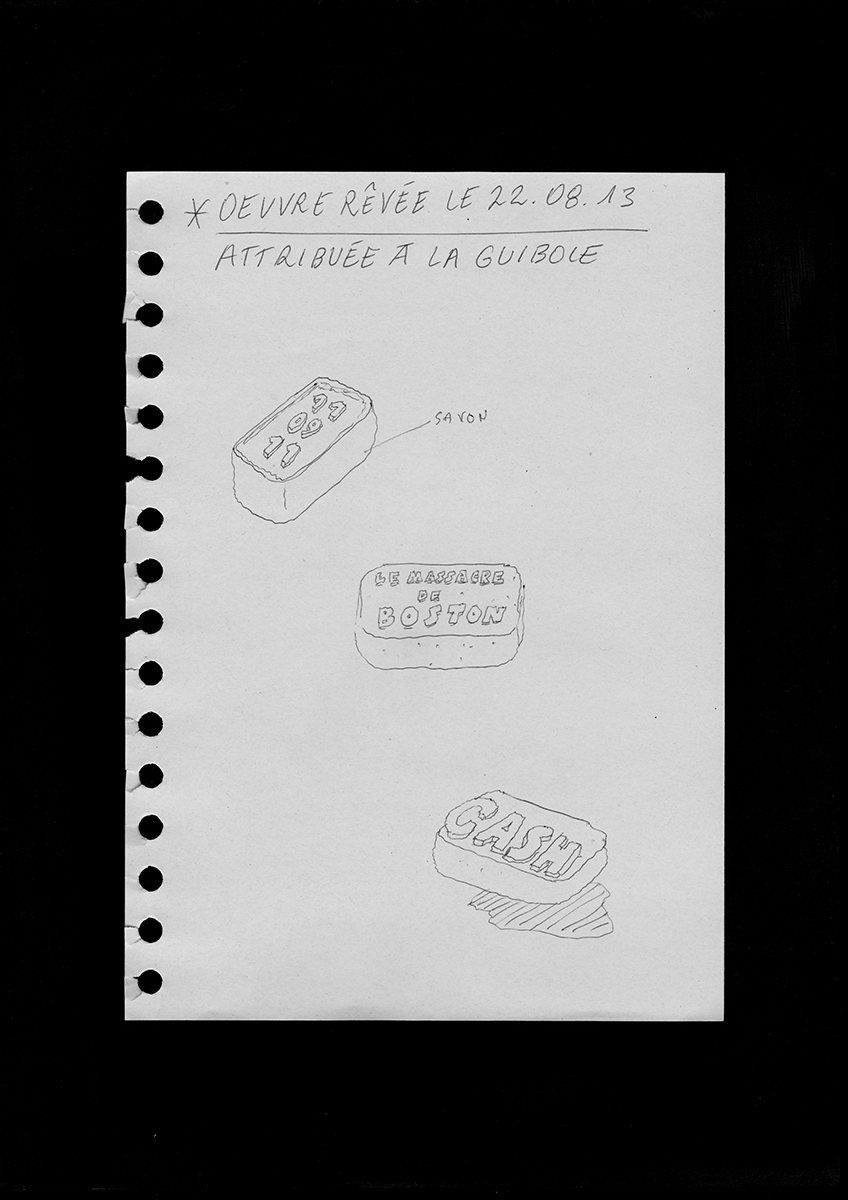 * OEUVRE RÊVÉE LE 22.08.13
ATTRIBUÉE À LA GUIBOLE
11
09
11
SAVON
LE MASSACRE
DE
BOSTON
CASH